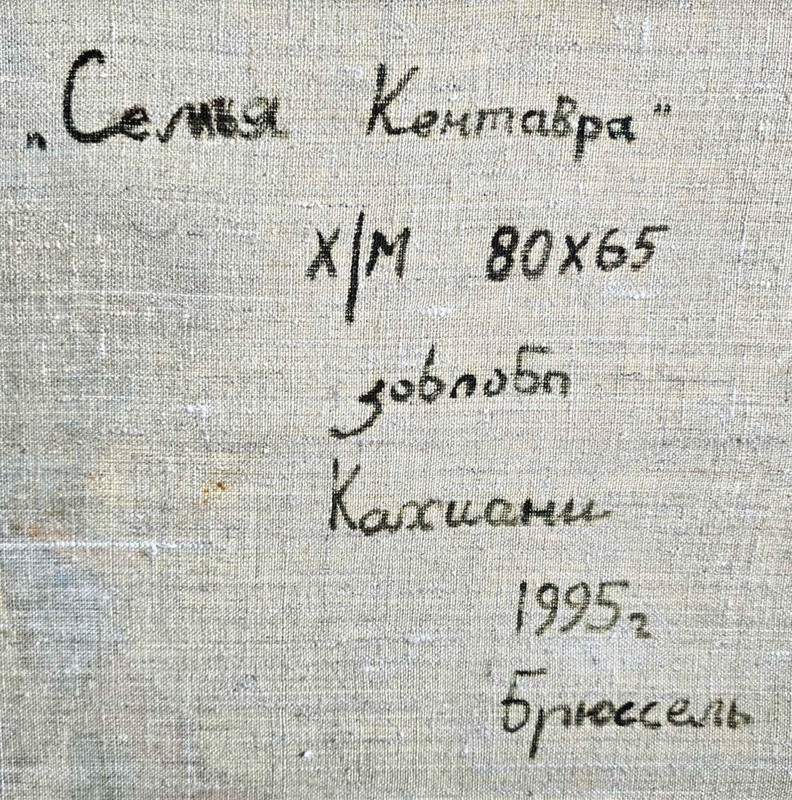 „Семья Кентавра"
Х/М 80х65
კახიანი
Кахиани
1995г
Брюссель